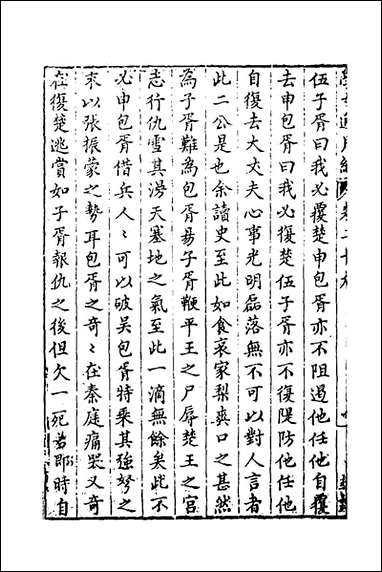 伍子胥曰我必覆楚申包胥亦不阻遏他任他自覆
去申包胥曰我必復楚伍子胥亦不復隄防他任他
自復去大丈夫心事光明磊落無不可以對人言者
此二公是也余讀史至此如食哀家梨爽口之甚然
為子胥難為包胥易子胥鞭平王之尸辱楚王之宮
志行仇雪其滂天塞地之氣至此一滴無餘矣此不
必申包胥借兵人〻可以破吳包胥特乘其強弩之
末以張振蒙之勢耳包胥之奇〻在秦庭痛哭又奇
在復楚逃賞如子胥報仇之後但欠一死若即時自